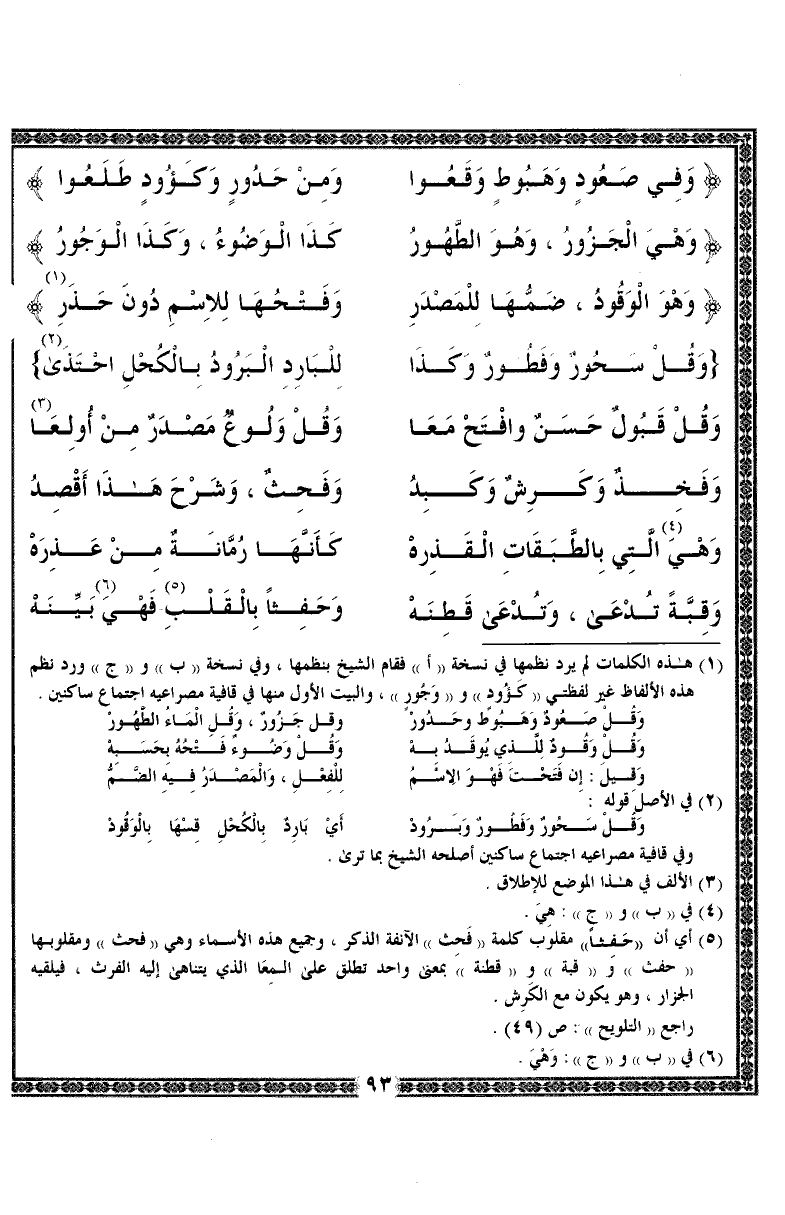 ﴿ وَفِي صَعُودٍ وَهَبُوطٍ وَقَعُوا وَمِنْ حَدُورٍ وَكَؤُودٍ طَلَعُوا ﴾
﴿ وَهْيَ الْجَزُورُ ، وَهُوَ الطَّهُورُ كَذَا الْوَضُوءُ ، وَكَذَا الْوَجُورُ ﴾
﴿ وَهْوَ الْوَقُودُ ، ضَمُّهَا لِلْمَصْدَرِ وَفَتْحُهَا لِلِاسْمِ دُونَ حَذَرِ ﴾ (١)
{وَقُلْ سَحُورٌ وَفَطُورٌ وَكَذَا لِلْبَارِدِ الْبَرُودُ بِالْكُحْلِ احْتَذَىٰ} (٢)
وَقُلْ قَبُولٌ حَسَنٌ وافْتَحْ مَعَا وَقُلْ وَلُوعٌ مَصْدَرٌ مِنْ أُولِعَا (٣)
وَفَخِذٌ وَكَرِشٌ وَكَبِدُ وَفَحِثٌ ، وَشَرْحَ هَـٰذَا أَقْصِدُ
وَهْيَ (٤) الَّتِي بِالطَّبَقَاتِ الْقَذِرهْ كَأَنَّهَا رُمَّانَةٌ مِنْ عَذِرَهْ
وَقِبَّةٌ تُدْعَىٰ ، وَتُدْعَىٰ قَطِنَهْ وَحَفِثاً بِالْقَلْبِ (٥) فَهْيَ (٦) بَيِّنَهْ
(١) هـٰذه الكلمات لم يرد نظمها في نسخة « أ » فقام الشيخ بنظمها ، وفي نسخة « ب » و « ج » ورد نظم
هذه الألفاظ غير لفظتي « كَؤُود » و « وَجُور » ، والبيت الأول منها في قافية مصراعيه اجتماع ساكنين .
وَقُلْ صَعُودٌ وَهَبُوطٌ وحَدُورْ وقل جَزُورٌ ، وَقُلِ الْمَاءُ الطَّهُورْ
وَقُلْ وَقُودٌ لِلَّذي يُوقَدُ بِهْ وَقُلْ وَضُوءٌ فَتْحُهُ بِحَسَبِهْ
وَقِيلَ : إِن فَتَحْتَ فَهْوَ الِاسْمُ لِلْفِعْلِ ، وَالْمَصْدَرُ فِيهِ الضَّمُّ
(٢) في الأصل قوله :
وَقُلْ سَحُورٌ وَفَطُورٌ وَبَرُودْ أَيْ بَارِدٌ بِالْكُحْلِ قِسْهَا بِالْوَقُودْ
وفي قافية مصراعيه اجتماع ساكنين أصلحه الشيخ بما ترىٰ .
(٣) الألف في هـٰذا الموضع للإطلاق .
(٤) في « ب » و « ج » : هِيَ .
(٥) أي أن «حَفثاً» مقلوب كلمة « فَحث » الآنفة الذكر ، وجميع هذه الأسماء وهي « فحث » ومقلوبها
« حفث » وَ « قبة » و « قطنة » بمعنى واحد تطلق علىٰ المِعَا الذي يتناهىٰ إليه الفرث ، فيلقيه
الجزار ، وهو يكون مع الكَرِش .
راجع « التلويح » : ص (٤٩) .
(٦) في « ب » و « ج » : وَهْيَ .
٩٣